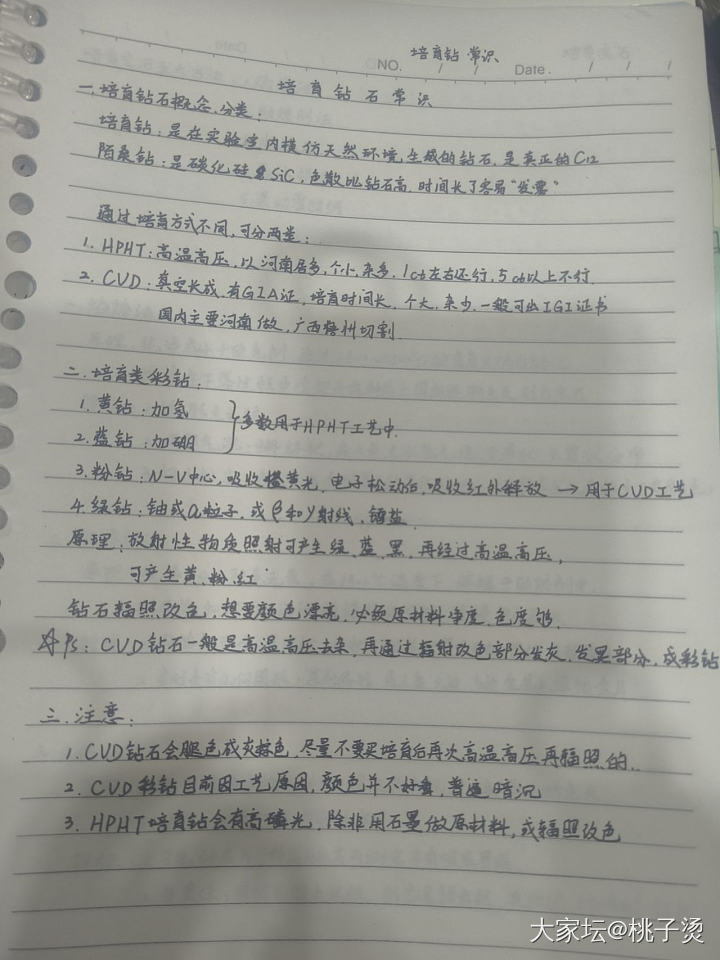 培育钻常识
NO. / / Date. / / /
培育钻石常识
一.培育钻石概念.分类:
培育钻:是在实验室内模仿天然环境,生成的钻石,是真正的C12
陌桑钻:是碳化硅 SiC,色散比钻石高,时间长了容易"发雾"
通过培育方式不同,可分两类:
1. HPHT:高温高压,以河南居多,个小,杂多,1cb左右还行,5cb以上不行.
2. CVD:真空长成,有GIA证,培育时间长,个大,杂少,一般可出IGI证书
国内主要河南做,广西梧州切割.
二.培育类彩钻:
1.黄钻:加氮
2.蓝钻:加硼
}多数用于HPHT工艺中.
3.粉钻:N-V中心,吸收橙黄光,电子松动后,吸收红外释放 → 用于CVD工艺
4.绿钻:铀或α粒子,或β和γ射线,镭盐.
原理:放射性物质照射可产生绿、蓝、黑,再经过高温高压,
可产生黄、粉、红.
钻石辐照改色,想要颜色漂亮,必须原材料净度、色度够.
☆Ps:CVD钻石一般是高温高压去杂,再通过辐射改色部分发灰、发黑部分,成彩钻
三.注意:
1.CVD钻石会腿色成灰棕色,尽量不要买培育后再次高温高压再辐照的..
2.CVD彩钻目前因工艺原因,颜色并不好看,普遍暗沉
3.HPHT培育钻会有高磷光,除非用石墨做原材料,或辐照改色
大家坛@桃子烫